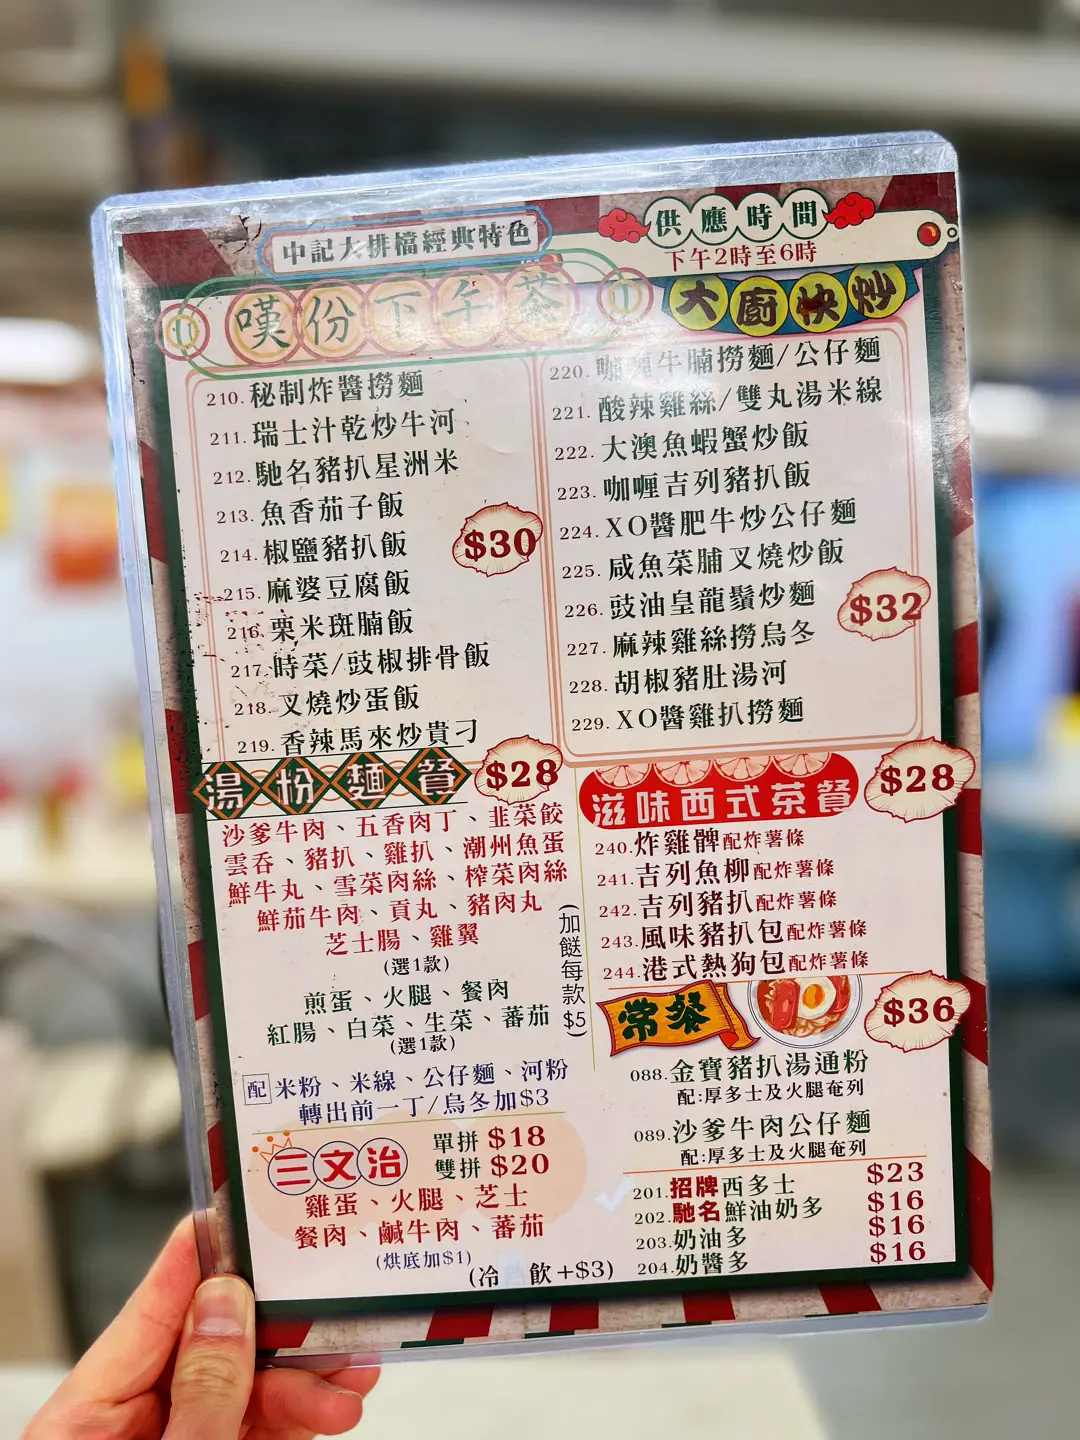 中記大排檔經典特色
供應時間
下午2時至6時
嘆份下午茶
210.秘制炸醬撈麵
211.瑞士汁乾炒牛河
212.馳名豬扒星洲米
213.魚香茄子飯
214.椒鹽豬扒飯
215.麻婆豆腐飯
216.栗米斑腩飯
217.時菜/豉椒排骨飯
218.叉燒炒蛋飯
219.香辣馬來炒貴刁
$30
大廚快炒
220.咖喱牛腩撈麵/公仔麵
221.酸辣雞絲/雙丸湯米線
222.大澳魚蝦蟹炒飯
223.咖喱吉列豬扒飯
224.XO醬肥牛炒公仔麵
225.咸魚菜脯叉燒炒飯
226.豉油皇龍鬚炒麵
227.麻辣雞絲撈烏冬
228.胡椒豬肚湯河
229.XO醬雞扒撈麵
$32
湯粉麵餐 $28
沙爹牛肉、五香肉丁、韭菜餃
雲吞、豬扒、雞扒、潮州魚蛋
鮮牛丸、雪菜肉絲、榨菜肉絲
鮮茄牛肉、貢丸、豬肉丸
芝士腸、雞翼
(選1款)
煎蛋、火腿、餐肉
紅腸、白菜、生菜、蕃茄
(選1款)
(加餸每款$5)
配 米粉、米線、公仔麵、河粉
轉出前一丁/烏冬加$3
三文治
單拼 $18
雙拼 $20
雞蛋、火腿、芝士
餐肉、鹹牛肉、蕃茄
(烘底加$1)
(冷 飲+$3)
滋味西式茶餐 $28
240.炸雞髀配炸薯條
241.吉列魚柳配炸薯條
242.吉列豬扒配炸薯條
243.風味豬扒包配炸薯條
244.港式熱狗包配炸薯條
常餐 $36
088.金寶豬扒湯通粉
配:厚多士及火腿奄列
089.沙爹牛肉公仔麵
配:厚多士及火腿奄列
201.招牌西多士 $23
202.馳名鮮油奶多 $16
203.奶油多 $16
204.奶醬多 $16